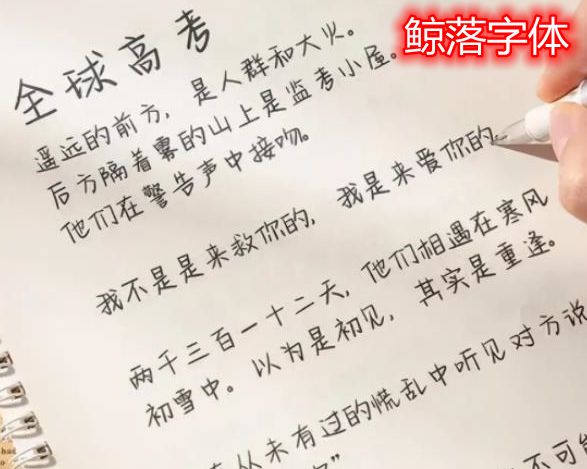 鲸落字体
全球高考
遥远的前方，是人群和大火。
后方隔着雾的山上是监考小屋。
他们在警告声中接吻。
我不是是来救你的，我是来爱你的
两千三百一十二天，他们相遇在寒风
初雪中。以为是初见，其实是重逢。
从未有过的慌乱中听见对方说
不可能